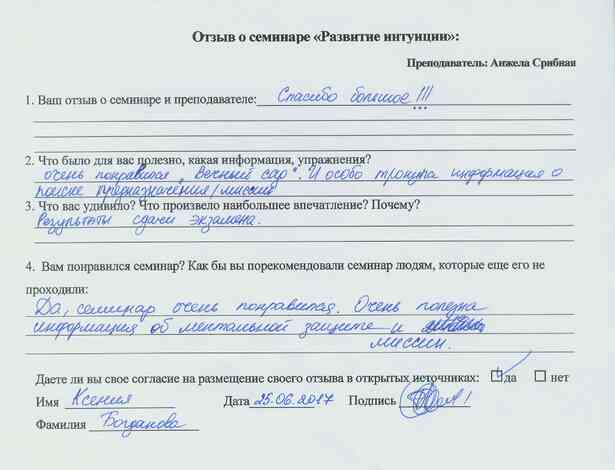 Отзыв о семинаре «Развитие интуиции»:
Преподаватель: Анжела Срибная
1. Ваш отзыв о семинаре и преподавателе: Спасибо большое!!!
2. Что было для вас полезно, какая информация, упражнения?
очень понравился „Вечный сад". И особо тронула информация о
поиске предназначения/миссии
3. Что вас удивило? Что произвело наибольшее впечатление? Почему?
Результаты сдачи экзамена.
4. Вам понравился семинар? Как бы вы порекомендовали семинар людям, которые еще его не
проходили:
Да, семинар очень понравился. Очень полезна
информация об ментальной защите и
миссии.
Даете ли вы свое согласие на размещение своего отзыва в открытых источниках: да нет
Имя Ксения Дата 25.06.2017 Подпись
Фамилия Богданова